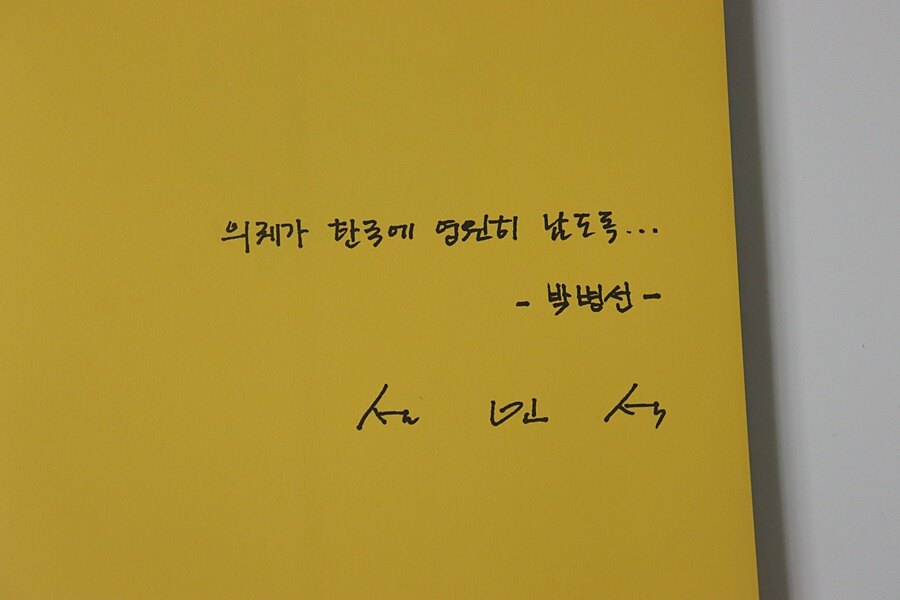 의궤가 한국에 영원히 남도록...
- 박병선 -
설 민 석